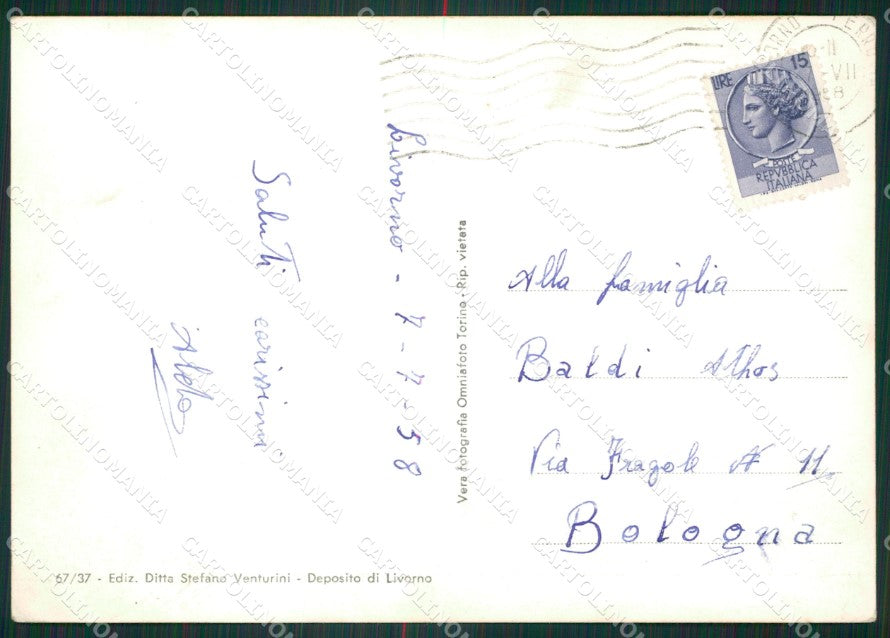 Livorno - 7-7-58
Saluti carissimi
Aldo
Vera fotografia Omniafoto Torino - Rip. vietata
67/37 - Ediz. Ditta Stefano Venturini - Deposito di Livorno
LIRE 15
POSTE
REPVBBLICA
ITALIANA
Alla famiglia
Baldi Athos
Via Fragole N 11
Bologna
CARTOLINOMANIA